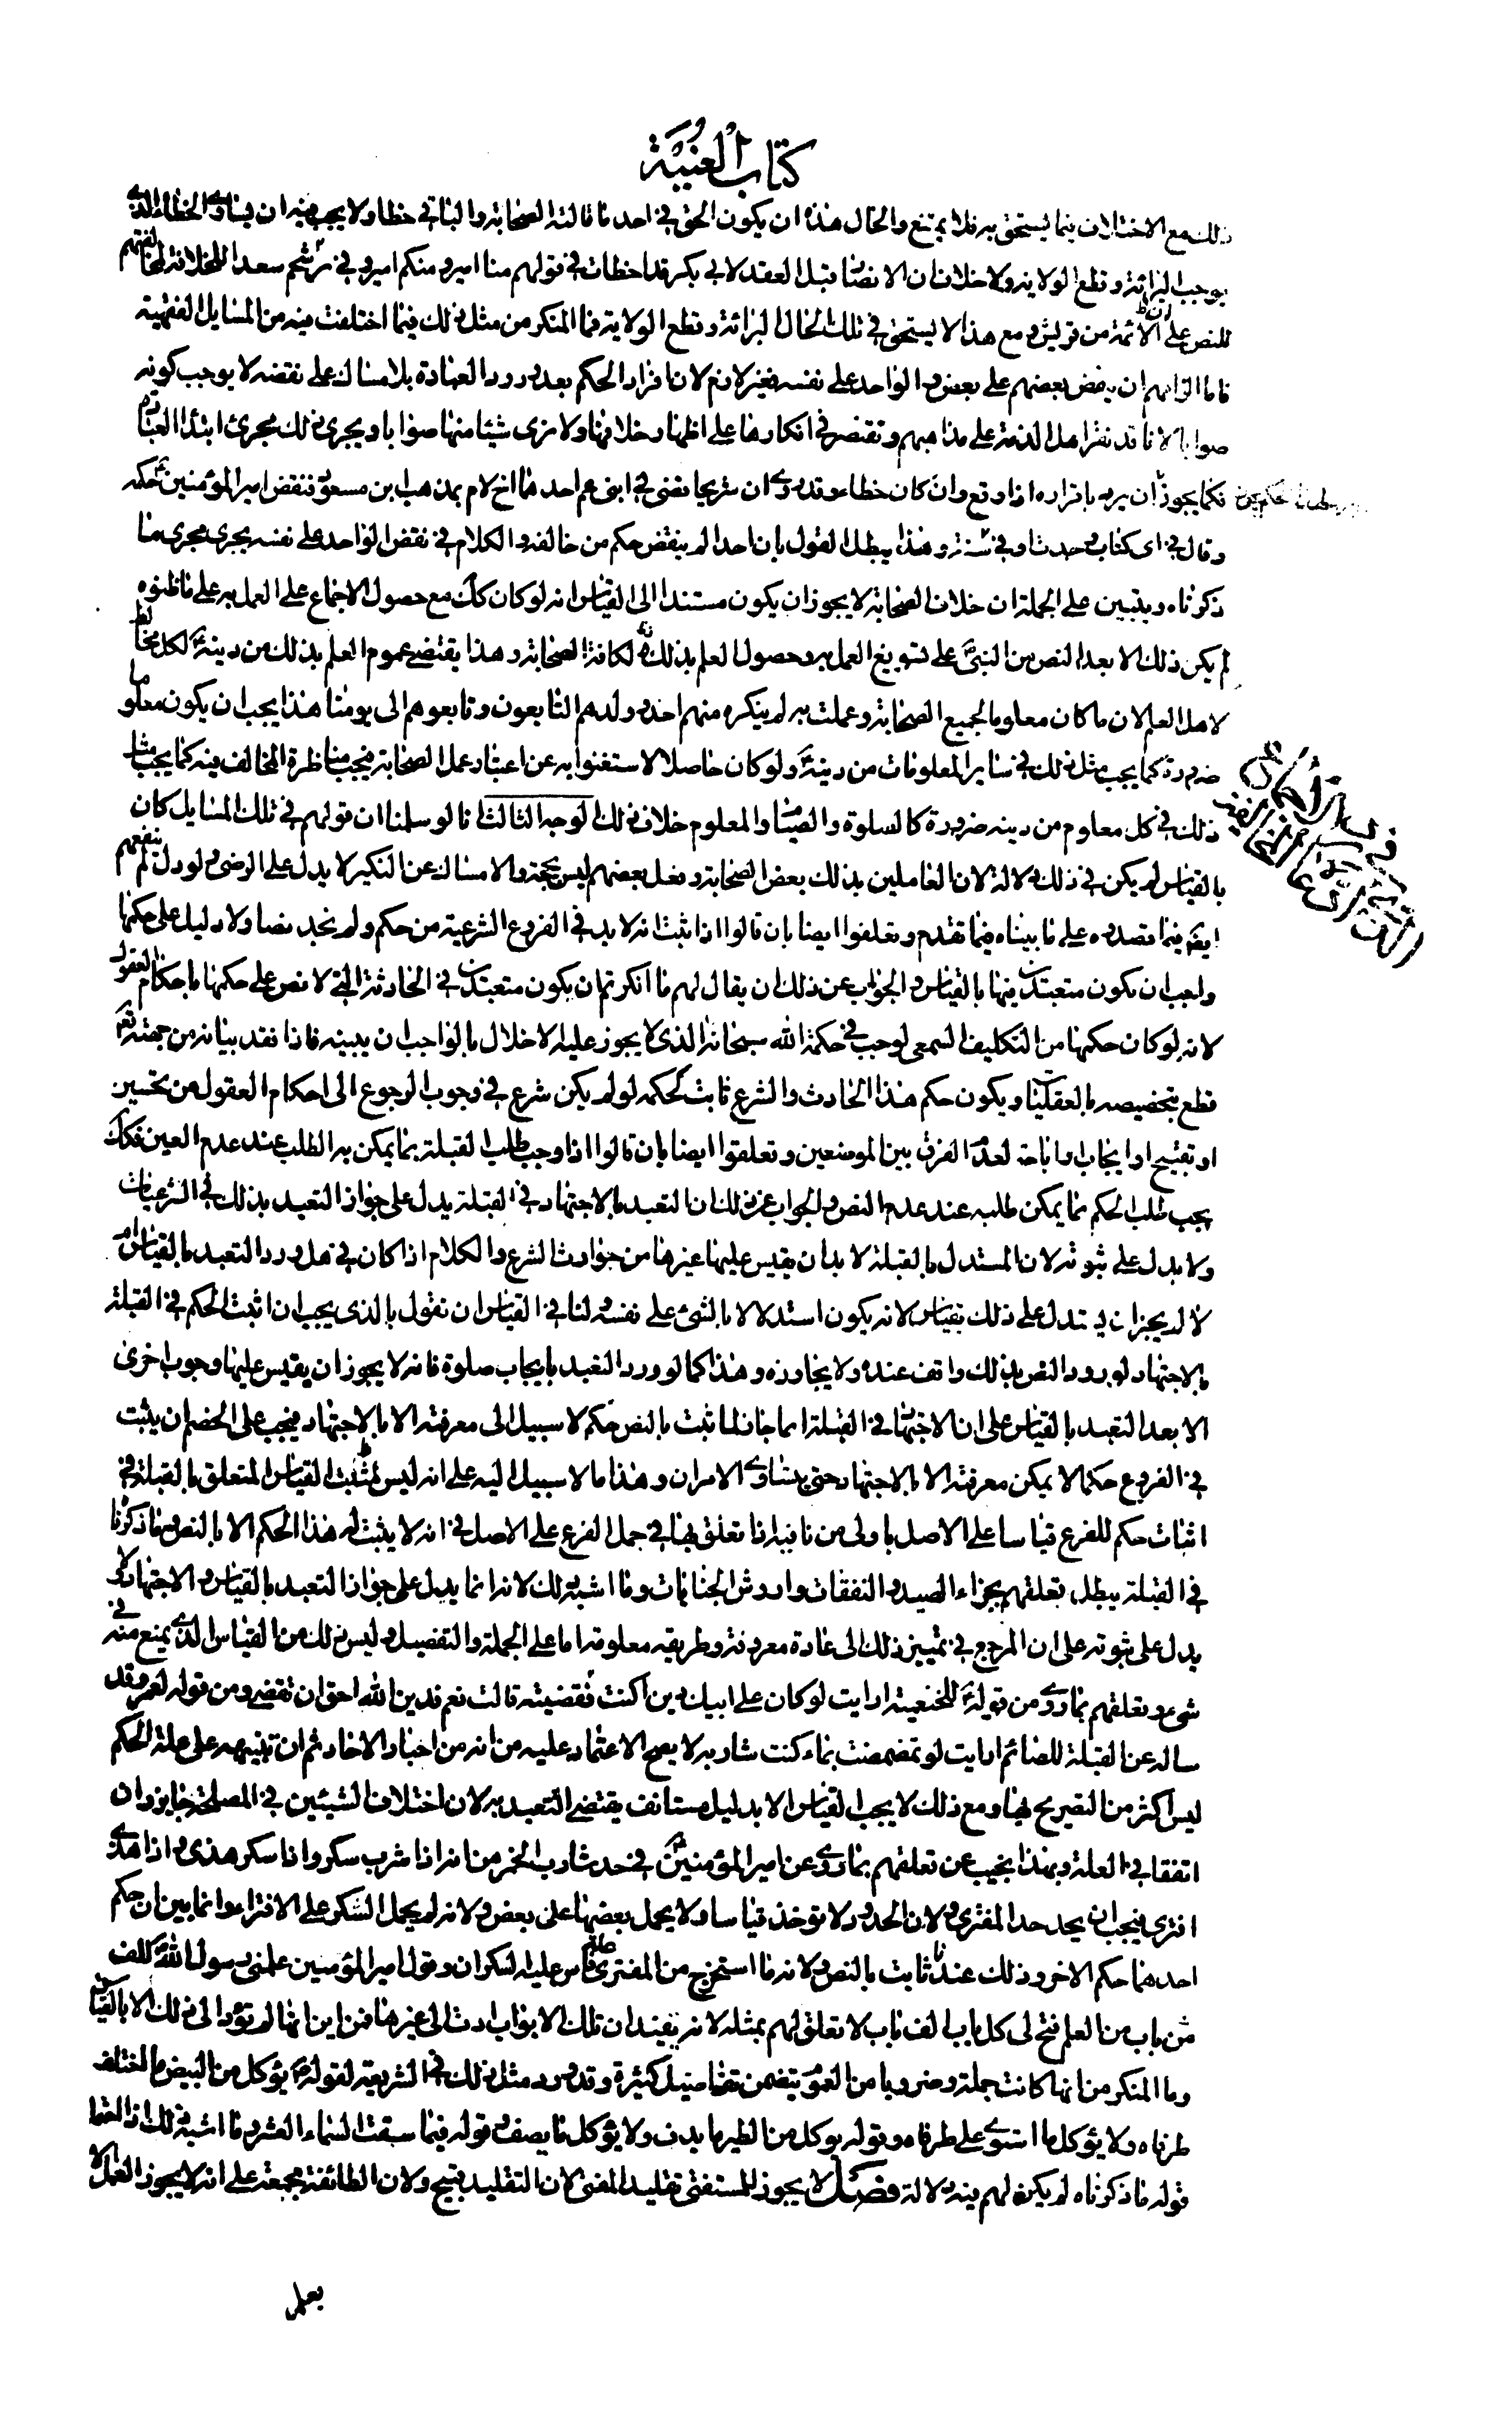 كتاب الغنية
ذلك مع الاختلاف فيما يستحق به فلا يمتنع والحال هذه ان يكون الحق في احد ما قالته الصحابة والباقي خطا ولا يجب فيه ان يساوي الخطاء الذي
يوجب البرائة وقطع الولاية ولا خلاف ان الانصار قبل العقد لابي بكر قد اخطات في قولهم منا امير ومنكم امير وفي ترشحهم سعدا للخلافة لمخالفتهم
للنص على ان الائمة من قريش ومع هذا لا يستحق في تلك الحال البرائة وقطع الولاية فما المنكر من مثل ذلك فيما اختلفت فيه من المسايل الفقهية
فاما الزامهم ان ينقض بعضهم على بعض والواحد على نفسه فغير لازم لان اقرار الحكم بعد ورود العبادة بالامساك على نقضه لا يوجب كونه
صوابا الا انا قد نقر اهل الذمة على مذاهبهم ونقتصر في انكارها على اظهار خلافها ولا نرى شيئا منها صوابا ويجري ذلك مجرى ابتداء العبادة
فكما يجوز ان يرد باقراره اذا وقع وان كان خطاء وقد روي ان شريحا قضى في ابنى عم احدهما اخ لام بمذهب ابن مسعود فنقض امير المؤمنين حكمه
وقال في اى كتاب وجدت او في سنة وهذا يبطل القول بان احدا لم ينقض حكم من خالفه والكلام في نقض الواحد على نفسه يجرى مجرى ما
ذكرناه ويتبين على الجملة ان خلاف الصحابة لا يجوز ان يكون مستندا الى القياس انه لو كان كك مع حصول الاجماع على العمل به على ما ظنوه
لم يكن ذلك الا بعد النص من النبي على تسويغ العمل به وحصول العلم بذلك لكافة الصحابة وهذا يقتضى عموم العلم بذلك من دينه لكل مخالط
لاهل العلم لان ما كان معلوما لجميع الصحابة وعملت به لم ينكره منهم احد ولدهم التابعون وتابعوهم الى يومنا هذا يجب ان يكون معلوما
ضرورة كما يجب مثل ذلك في ساير المعلومات من دينه ولو كان حاصلا لاستغنوا به عن اعتبار عمل الصحابة فيجب مناظرة المخالف فيه كما يجب مثل
ذلك في كل معلوم من دينه ضرورة كالصلوة والصيام والمعلوم خلاف ذلك الوجه الثالث انا لو سلمنا ان قولهم في تلك المسايل كان
بالقياس لم يكن في ذلك دلالة لان العاملين بذلك بعض الصحابة وفعل بعضهم ليس بحجة والامساك عن النكير لا يدل على الرضى ولو دل لم ينفعهم
ايضا فيما قصدوه على ما بيناه فيما تقدم وتعلقوا ايضا بان قالوا اذا ثبت انه لا بد في الفروع الشرعية من حكم ولم نجد نصا ولا دليل على حكمها
واجب ان نكون متعبدين فيها بالقياس والجواب عن ذلك ان يقال لهم ما انكرتم ان يكون متعبدين في الحادثة التي لا نص على حكمها باحكام العقول
لانه لو كان حكمها من التكليف السمعى لوجب في حكمة الله سبحانه الذى لا يجوز عليه الاخلال بالواجب ان يبينه فاذا فقد بيانه من جهته تعالى
قطع بتخصيصه بالعقليات ويكون حكم هذا الحادث والشرع ثابت كحكمه لو لم يكن شرع في وجوب الرجوع الى احكام العقول من تحسين
او تقبيح او ايجاب او اباحة لعدم الفرق بين الموضعين وتعلقوا ايضا بان قالوا اذا وجب طلب القبلة بما يمكن به الطلب عند عدم العين فكك
يجب طلب الحكم بما يمكن طلبه عند عدم النص والجواب عن ذلك ان التعبد بالاجتهاد في القبلة يدل على جواز التعبد بذلك في الشرعيات
ولا يدل على ثبوته لان المستدل بالقبلة لا بد ان يقيس عليها غيرها من حوادث الشرع والكلام اذا كان في هل ورد التعبد بالقياس ام
لا لم يجز ان يستدل على ذلك بقياس لانه يكون استدلالا بالشئ على نفسه ولنا في القياس ان نقول بالذى يجب ان اثبت الحكم في القبلة
بالاجتهاد لورود النص بذلك واقف عنده ولا يجاوزه وهذا كما لو ورد التعبد بايجاب صلوة فانه لا يجوز ان يقيس عليها وجوب اخرى
الا بعد التعبد بالقياس على ان الاجتهاد في القبلة انما جاز لما ثبت بالنص حكم لا سبيل الى معرفته الا بالاجتهاد فيجب على الخصم ان يثبت
في الفروع حكما لا يمكن معرفته الا بالاجتهاد حتى يتساوى الامران وهذا ما لا سبيل اليه على انه ليس لمثبت القياس المتعلق بالقبلة في
اثبات حكم للفرع قياسا على الاصل باولى من نافيه اذا تعلق بها في حمل الفرع على الاصل في انه لا يثبت له هذا الحكم الا بالنص وما ذكرنا
في القبلة يبطل تعلقهم بجزاء الصيد والنفقات واروش الجنايات وما اشبه ذلك لانه انما يدل على جواز التعبد بالقياس والاجتهاد ولا
يدل على ثبوته على ان المرجع في تمييز ذلك الى عادة معروفة وطريقه معلومة اما على الجملة والتفصيل وليس ذلك من القياس الذى يمنع منه في
شىء وتعلقهم بما روى من قوله للخثعمية ارايت لو كان على ابيك دين اكنت تقضيته قالت نعم فدين الله احق ان تقضى ومن قوله لعمر وقد
ساله عن القبلة للصائم ارايت لو تمضمضت بماء كنت شاربه لا يصح الاعتماد عليه من انه من اخبار الاحاد ثم ان تنبيهه على علة الحكم
ليس اكثر من التصريح بها ومع ذلك لا يجب القياس الا بدليل مستانف يقتضى التعبد به لان اختلاف الشيئين في المصلحة جايز وان
اتفقا في العلة وبهذا يجيب عن تعلقهم بما روى عن امير المؤمنين في حد شارب الخمر من انه اذا شرب سكر واذا سكر هذى واذا هذى
افترى فيجب ان يحد حد المفترى ولان الحدود لا توخذ قياسا ولا يحمل بعضها على بعض ولانه لم يحمل السكر على الافتراء وانما بين ان حكم
احدهما حكم الاخر وذلك عندنا ثابت بالنص ولانه ما استخرج من المفترى علة قاس عليه السكران وقول امير المؤمنين علمنى رسول الله الف
من باب من العلم فتح لى كل باب الف باب لا تعلق لهم بمثله لانه يفيد ان تلك الابواب ادت الى غيرها فمن اين انها لم تؤد الى ذلك الا بالقياس
وما المنكر من انها كانت جملة وضروبا من العموم يتضمن تفاصيل كثيرة وقد ورد مثل ذلك في الشريعة لقوله يؤكل من البيض ما اختلف
طرفاه ولا يؤكل ما استوى على طرفاه وقوله يوكل من الطير ما يدف ولا يؤكل ما يصف وقوله فيما سقت السماء العشر وما اشبه ذلك
قوله ما ذكرناه لم يكن لهم فيه دلالة فصل لا يجوز للمستفتى تقليد المفتى لان التقليد قبيح ولان الطائفة مجمعة على انه لا يجوز العمل الا
بعلم